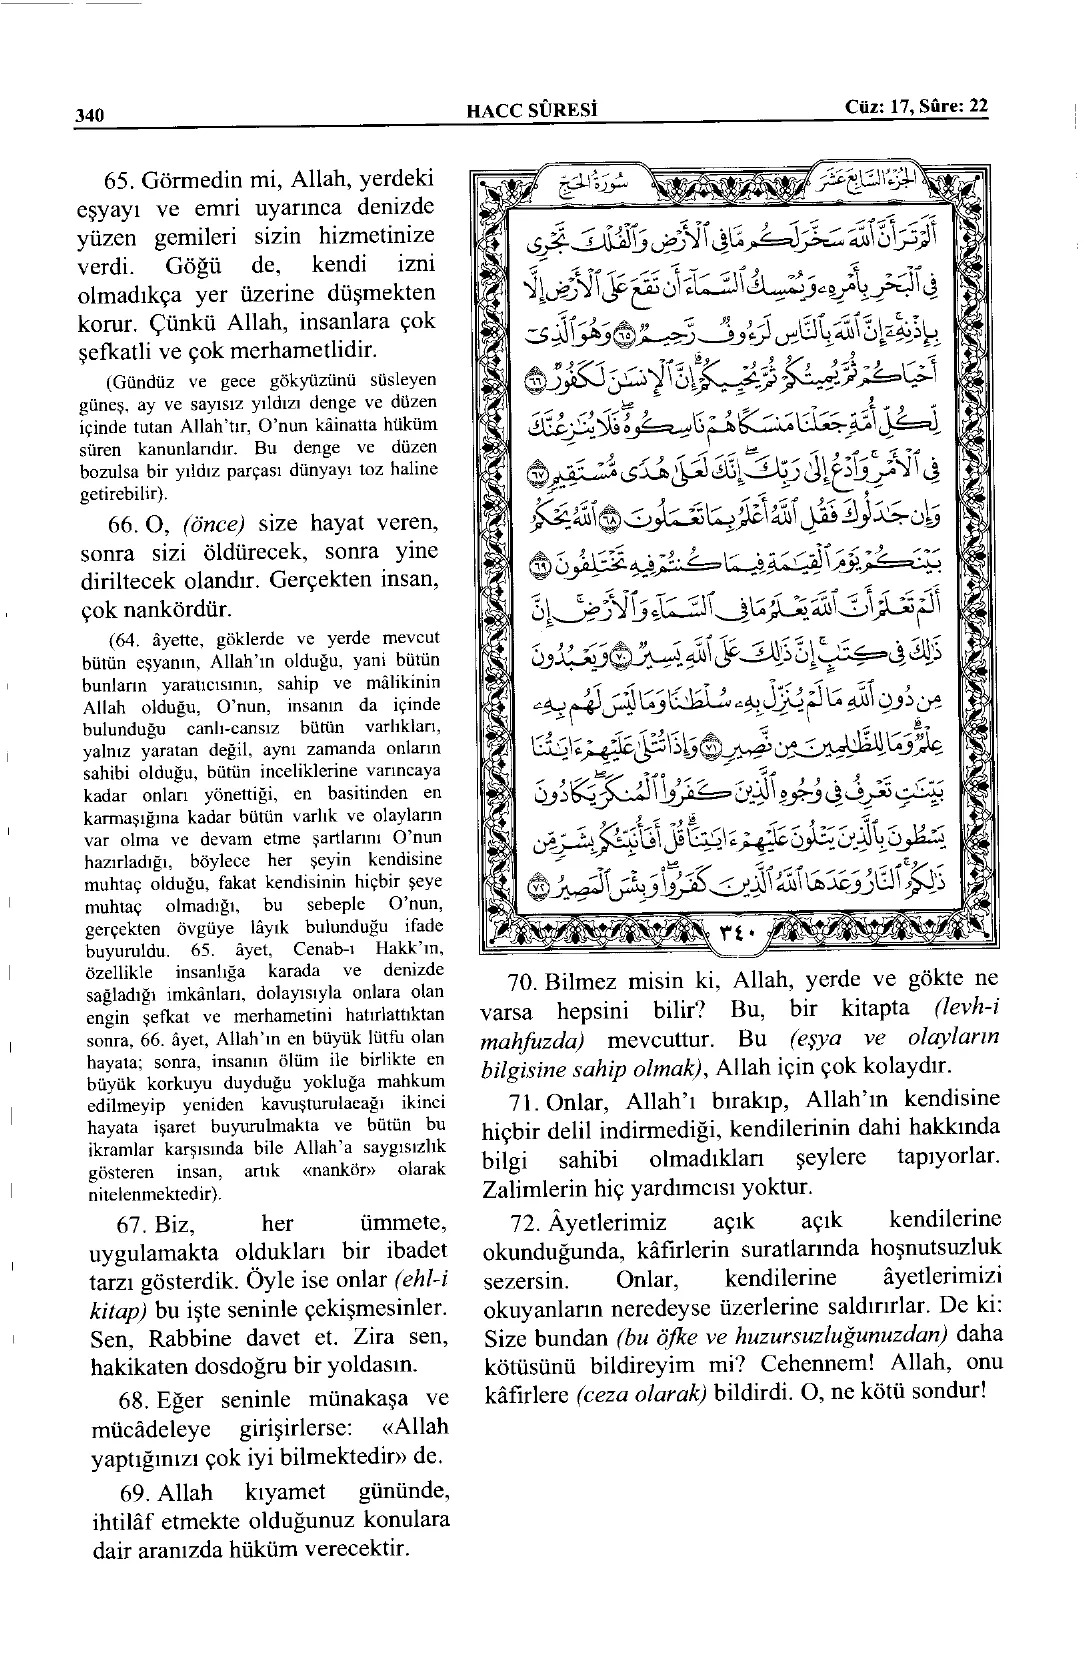 340 HACC SÛRESİ Cüz: 17, Sûre: 22
65. Görmedin mi, Allah, yerdeki
eşyayı ve emri uyarınca denizde
yüzen gemileri sizin hizmetinize
verdi. Göğü de, kendi izni
olmadıkça yer üzerine düşmekten
korur. Çünkü Allah, insanlara çok
şefkatli ve çok merhametlidir.
(Gündüz ve gece gökyüzünü süsleyen
güneş, ay ve sayısız yıldızı denge ve düzen
içinde tutan Allah'tır, O'nun kâinatta hüküm
süren kanunlarıdır. Bu denge ve düzen
bozulsa bir yıldız parçası dünyayı toz haline
getirebilir).
66. O, (önce) size hayat veren,
sonra sizi öldürecek, sonra yine
diriltecek olandır. Gerçekten insan,
çok nankördür.
(64. âyette, göklerde ve yerde mevcut
bütün eşyanın, Allah'ın olduğu, yani bütün
bunların yaratıcısının, sahip ve mâlikinin
Allah olduğu, O'nun, insanın da içinde
bulunduğu canlı-cansız bütün varlıkları,
yalnız yaratan değil, aynı zamanda onların
sahibi olduğu, bütün inceliklerine varıncaya
kadar onları yönettiği, en basitinden en
karmaşığına kadar bütün varlık ve olayların
var olma ve devam etme şartlarını O'nun
hazırladığı, böylece her şeyin kendisine
muhtaç olduğu, fakat kendisinin hiçbir şeye
muhtaç olmadığı, bu sebeple O'nun,
gerçekten övgüye lâyık bulunduğu ifade
buyuruldu. 65. âyet, Cenab-ı Hakk'ın,
özellikle insanlığa karada ve denizde
sağladığı imkânları, dolayısıyla onlara olan
engin şefkat ve merhametini hatırlattıktan
sonra, 66. âyet, Allah'ın en büyük lütfu olan
hayata; sonra, insanın ölüm ile birlikte en
büyük korkuyu duyduğu yokluğa mahkum
edilmeyip yeniden kavuşturulacağı ikinci
hayata işaret buyurulmakta ve bütün bu
ikramlar karşısında bile Allah'a saygısızlık
gösteren insan, artık «nankör» olarak
nitelenmektedir).
67. Biz, her ümmete,
uygulamakta oldukları bir ibadet
tarzı gösterdik. Öyle ise onlar (ehl-i
kitap) bu işte seninle çekişmesinler.
Sen, Rabbine davet et. Zira sen,
hakikaten dosdoğru bir yoldasın.
68. Eğer seninle münakaşa ve
mücâdeleye girişirlerse: «Allah
yaptığınızı çok iyi bilmektedir» de.
69. Allah kıyamet gününde,
ihtilâf etmekte olduğunuz konulara
dair aranızda hüküm verecektir.
الجزء السابع عشر سورة الحج
أَلَمْ تَرَ أَنَّ ٱللَّهَ سَخَّرَ لَكُم مَّا فِى ٱلْأَرْضِ وَٱلْفُلْكَ تَجْرِى
فِى ٱلْبَحْرِ بِأَمْرِهِۦ وَيُمْسِكُ ٱلسَّمَآءَ أَن تَقَعَ عَلَى ٱلْأَرْضِ إِلَّا
بِإِذْنِهِۦٓ إِنَّ ٱللَّهَ بِٱلنَّاسِ لَرَءُوفٌ رَّحِيمٌ ٦٥ وَهُوَ ٱلَّذِىٓ
أَحْيَاكُمْ ثُمَّ يُمِيتُكُمْ ثُمَّ يُحْيِيكُمْ إِنَّ ٱلْإِنسَٰنَ لَكَفُورٌ ٦٦
لِّكُلِّ أُمَّةٍ جَعَلْنَا مَنسَكًا هُمْ نَاسِكُوهُ فَلَا يُنَٰزِعُنَّكَ
فِى ٱلْأَمْرِ وَٱدْعُ إِلَىٰ رَبِّكَ إِنَّكَ لَعَلَىٰ هُدًى مُّسْتَقِيمٍ ٦٧
وَإِن جَٰدَلُوكَ فَقُلِ ٱللَّهُ أَعْلَمُ بِمَا تَعْمَلُونَ ٦٨ ٱللَّهُ يَحْكُمُ
بَيْنَكُمْ يَوْمَ ٱلْقِيَٰمَةِ فِيمَا كُنتُمْ فِيهِ تَخْتَلِفُونَ ٦٩
أَلَمْ تَعْلَمْ أَنَّ ٱللَّهَ يَعْلَمُ مَا فِى ٱلسَّمَآءِ وَٱلْأَرْضِ إِنَّ
ذَٰلِكَ فِى كِتَٰبٍ إِنَّ ذَٰلِكَ عَلَى ٱللَّهِ يَسِيرٌ ٧٠ وَيَعْبُدُونَ
مِن دُونِ ٱللَّهِ مَا لَمْ يُنَزِّلْ بِهِۦ سُلْطَٰنًا وَمَا لَيْسَ لَهُم بِهِۦ
عِلْمٌ وَمَا لِلظَّٰلِمِينَ مِن نَّصِيرٍ ٧١ وَإِذَا تُتْلَىٰ عَلَيْهِمْ ءَايَٰتُنَا
بَيِّنَٰتٍ تَعْرِفُ فِى وُجُوهِ ٱلَّذِينَ كَفَرُوا۟ ٱلْمُنكَرَ يَكَادُونَ
يَسْطُونَ بِٱلَّذِينَ يَتْلُونَ عَلَيْهِمْ ءَايَٰتِنَا قُلْ أَفَأُنَبِّئُكُم بِشَرٍّ مِّن
ذَٰلِكُمُ ٱلنَّارُ وَعَدَهَا ٱللَّهُ ٱلَّذِينَ كَفَرُوا۟ وَبِئْسَ ٱلْمَصِيرُ ٧٢
٣٤٠
70. Bilmez misin ki, Allah, yerde ve gökte ne
varsa hepsini bilir? Bu, bir kitapta (levh-i
mahfuzda) mevcuttur. Bu (eşya ve olayların
bilgisine sahip olmak), Allah için çok kolaydır.
71. Onlar, Allah'ı bırakıp, Allah'ın kendisine
hiçbir delil indirmediği, kendilerinin dahi hakkında
bilgi sahibi olmadıkları şeylere tapıyorlar.
Zalimlerin hiç yardımcısı yoktur.
72. Âyetlerimiz açık açık kendilerine
okunduğunda, kâfirlerin suratlarında hoşnutsuzluk
sezersin. Onlar, kendilerine âyetlerimizi
okuyanların neredeyse üzerlerine saldırırlar. De ki:
Size bundan (bu öfke ve huzursuzluğunuzdan) daha
kötüsünü bildireyim mi? Cehennem! Allah, onu
kâfirlere (ceza olarak) bildirdi. O, ne kötü sondur!